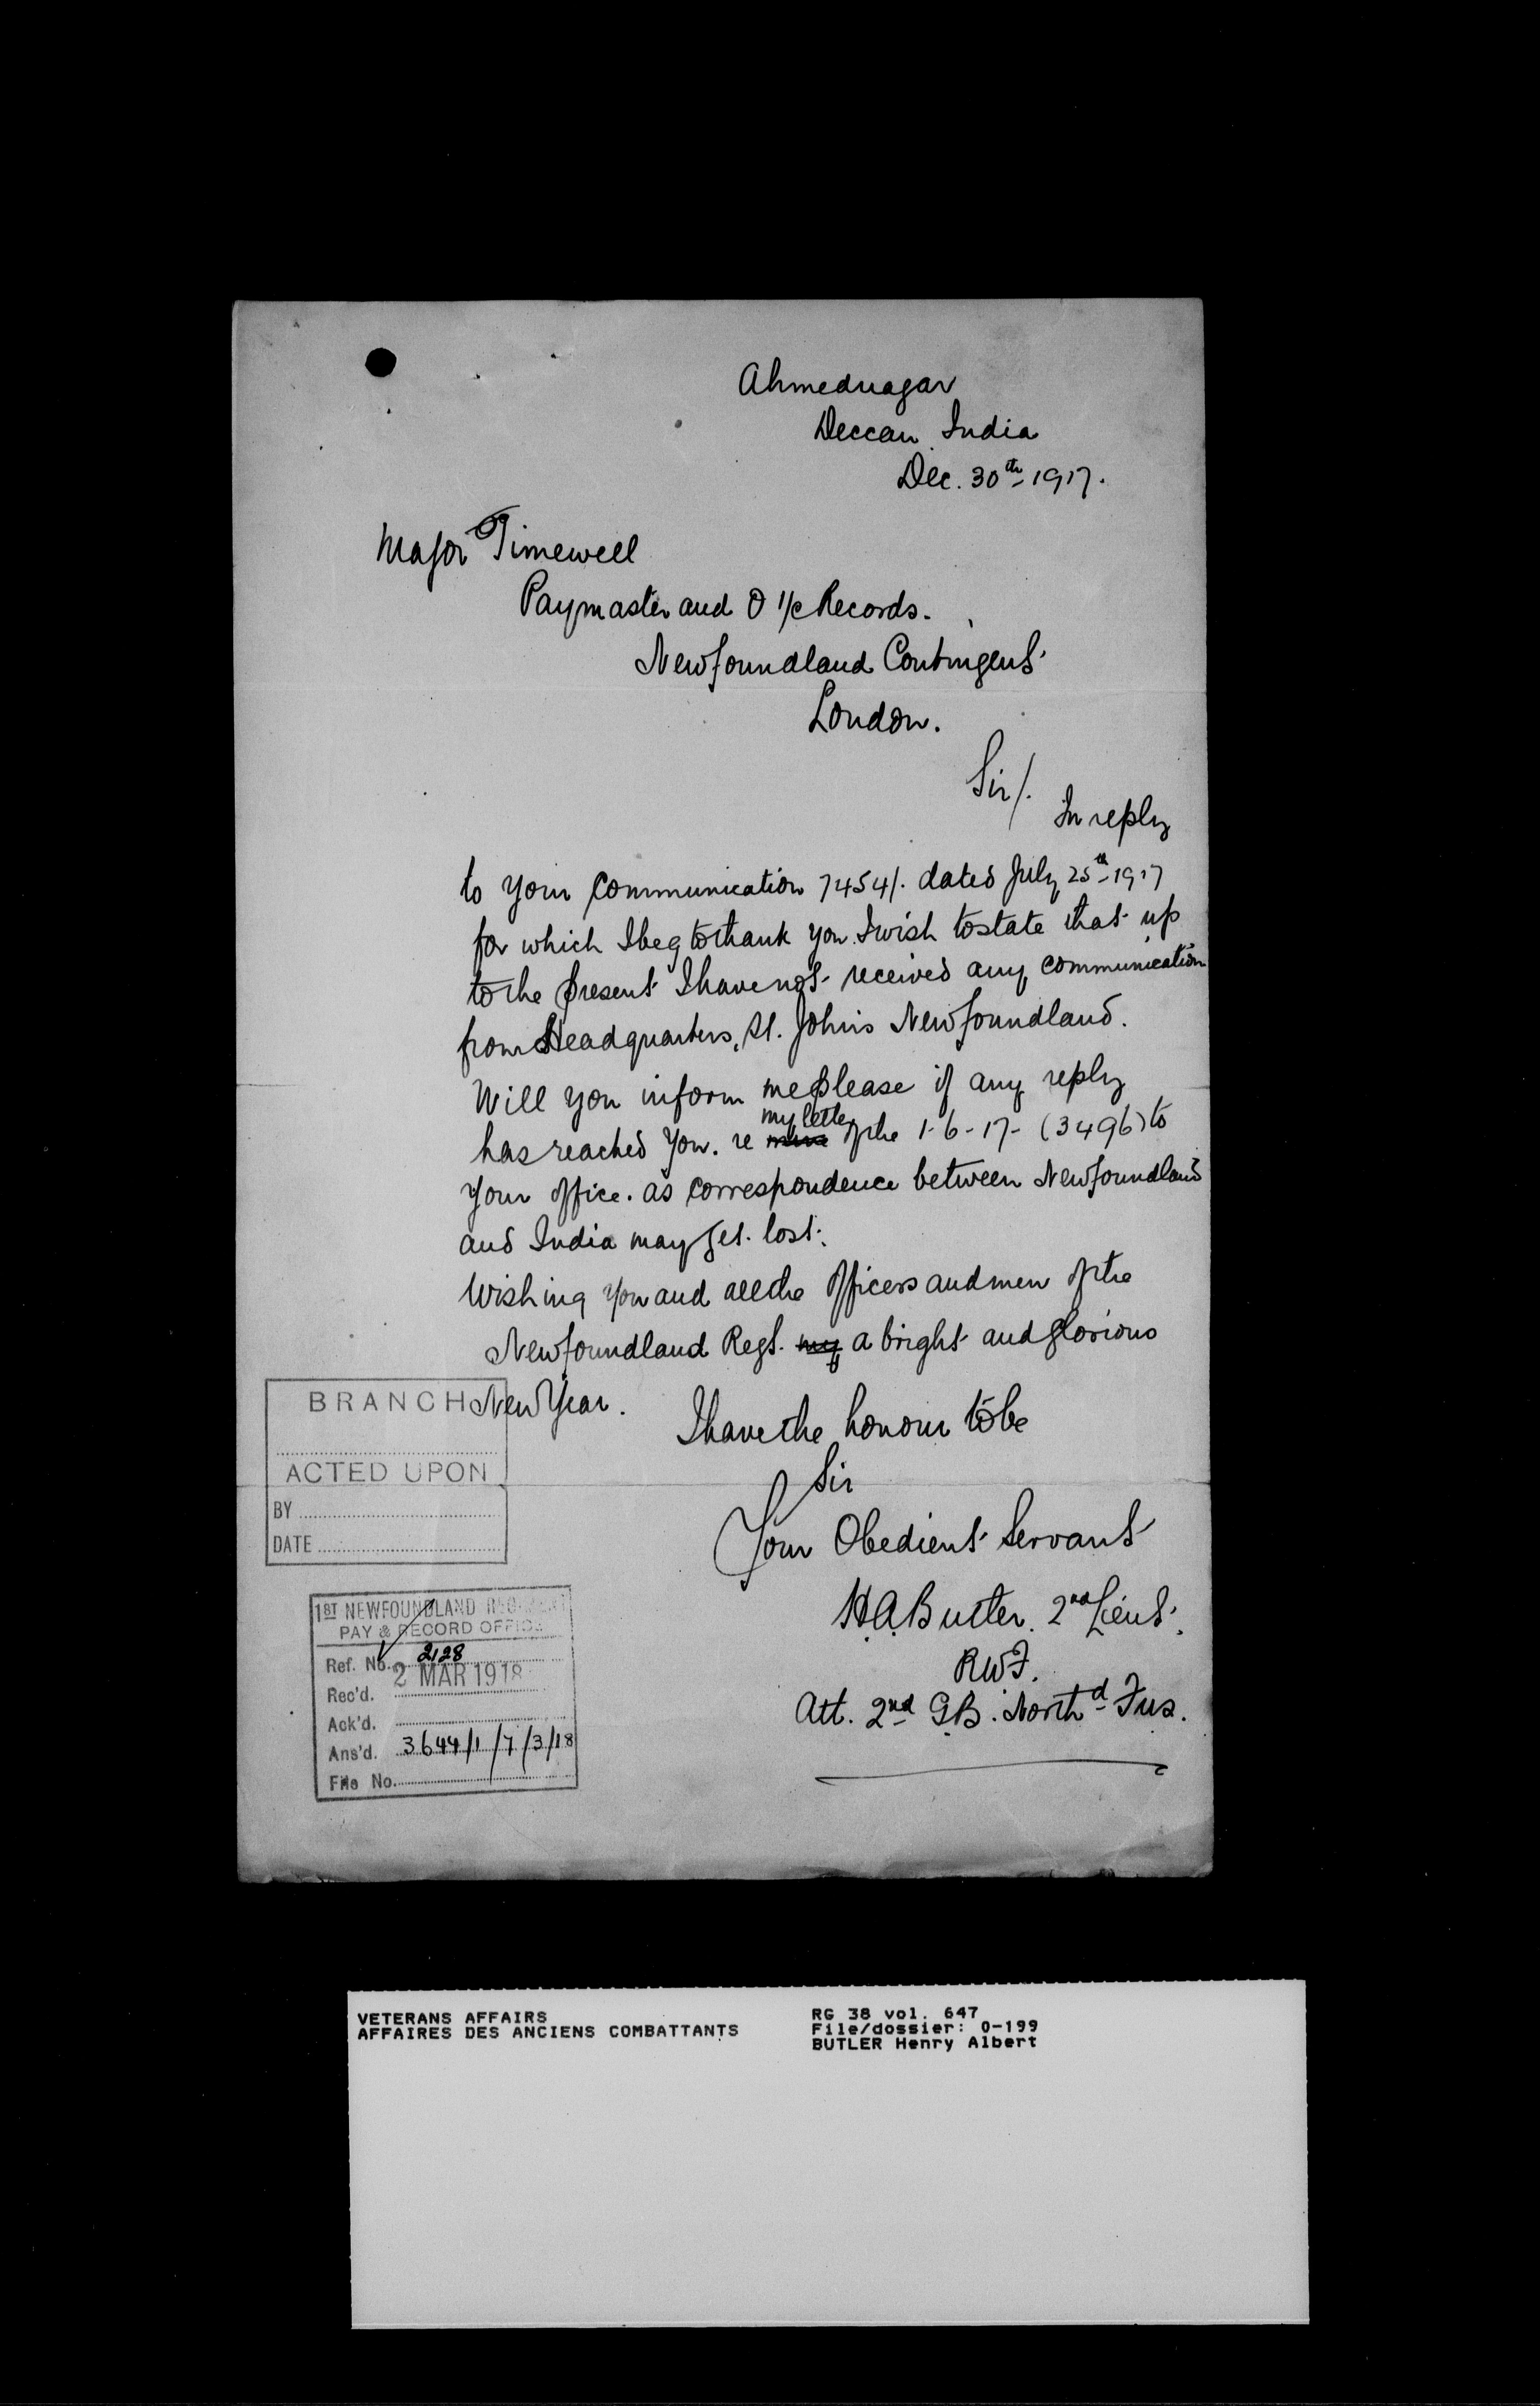 Ahmednagar
Deccan India
Dec. 30th 1917.
Major Timewell
Paymaster and O i/c Records.
Newfoundland Contingent
London.
Sir/.
In reply
to your communication 7454/. dated July 25th 1917
for which I beg to thank you. I wish to state that up
to the present I have not received any communication
from Headquarters, St. John's Newfoundland.
Will you inform me please if any reply
has reached you. re my letter of the 1-6-17- (3496) to
your office. as correspondence between Newfoundland
and India may get lost.
Wishing you and all the officers and men of the
Newfoundland Regt. my a bright and glorious
New Year.
I have the honour to be
Sir
Your Obedient Servant
H.A. Butler. 2nd Lieut.
R.W.F.
Att. 2nd G.B. North'd Fus.
BRANCH
ACTED UPON
BY
DATE
1ST NEWFOUNDLAND REGIMENT
PAY & RECORD OFFICE
Ref. No. 2128
Rec'd. 2 MAR 1918
Ack'd.
Ans'd. 3644/1/7/3/18
File No.
VETERANS AFFAIRS
AFFAIRES DES ANCIENS COMBATTANTS
RG 38 vol. 647
File/dossier: 0-199
BUTLER Henry Albert